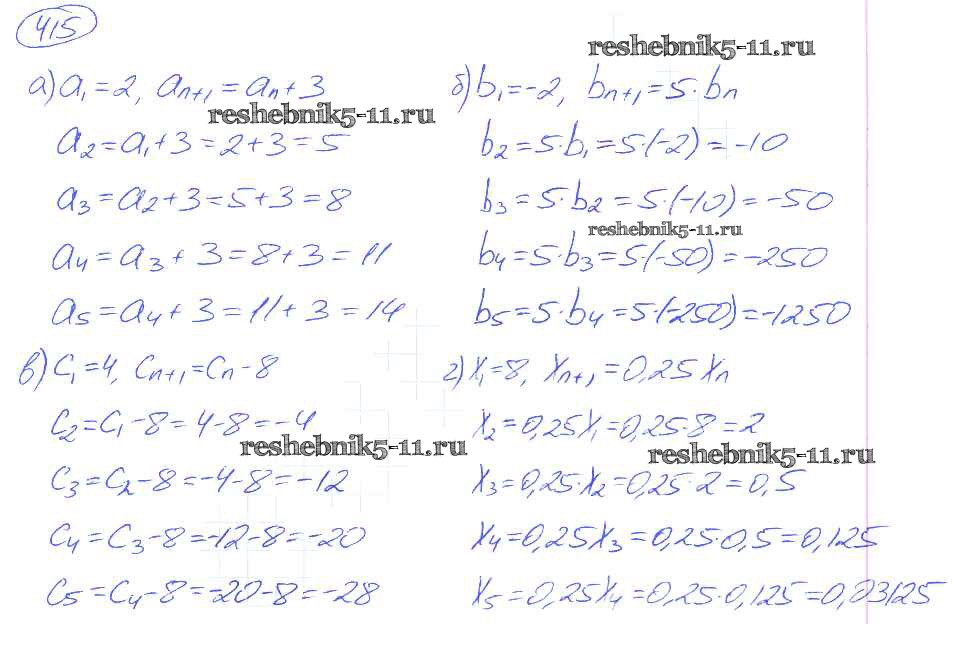 415
reshebnik5-11.ru
а) a₁=2, aₙ₊₁=aₙ+3
reshebnik5-11.ru
a₂=a₁+3=2+3=5
a₃=a₂+3=5+3=8
a₄=a₃+3=8+3=11
a₅=a₄+3=11+3=14
б) b₁=-2, bₙ₊₁=5·bₙ
b₂=5·b₁=5·(-2)=-10
b₃=5·b₂=5·(-10)=-50
reshebnik5-11.ru
b₄=5·b₃=5·(-50)=-250
b₅=5·b₄=5·(-250)=-1250
в) c₁=4, cₙ₊₁=cₙ-8
c₂=c₁-8=4-8=-4
reshebnik5-11.ru
c₃=c₂-8=-4-8=-12
c₄=c₃-8=-12-8=-20
c₅=c₄-8=-20-8=-28
г) x₁=8, xₙ₊₁=0,25xₙ
x₂=0,25x₁=0,25·8=2
reshebnik5-11.ru
x₃=0,25·x₂=0,25·2=0,5
x₄=0,25x₃=0,25·0,5=0,125
x₅=0,25x₄=0,25·0,125=0,03125